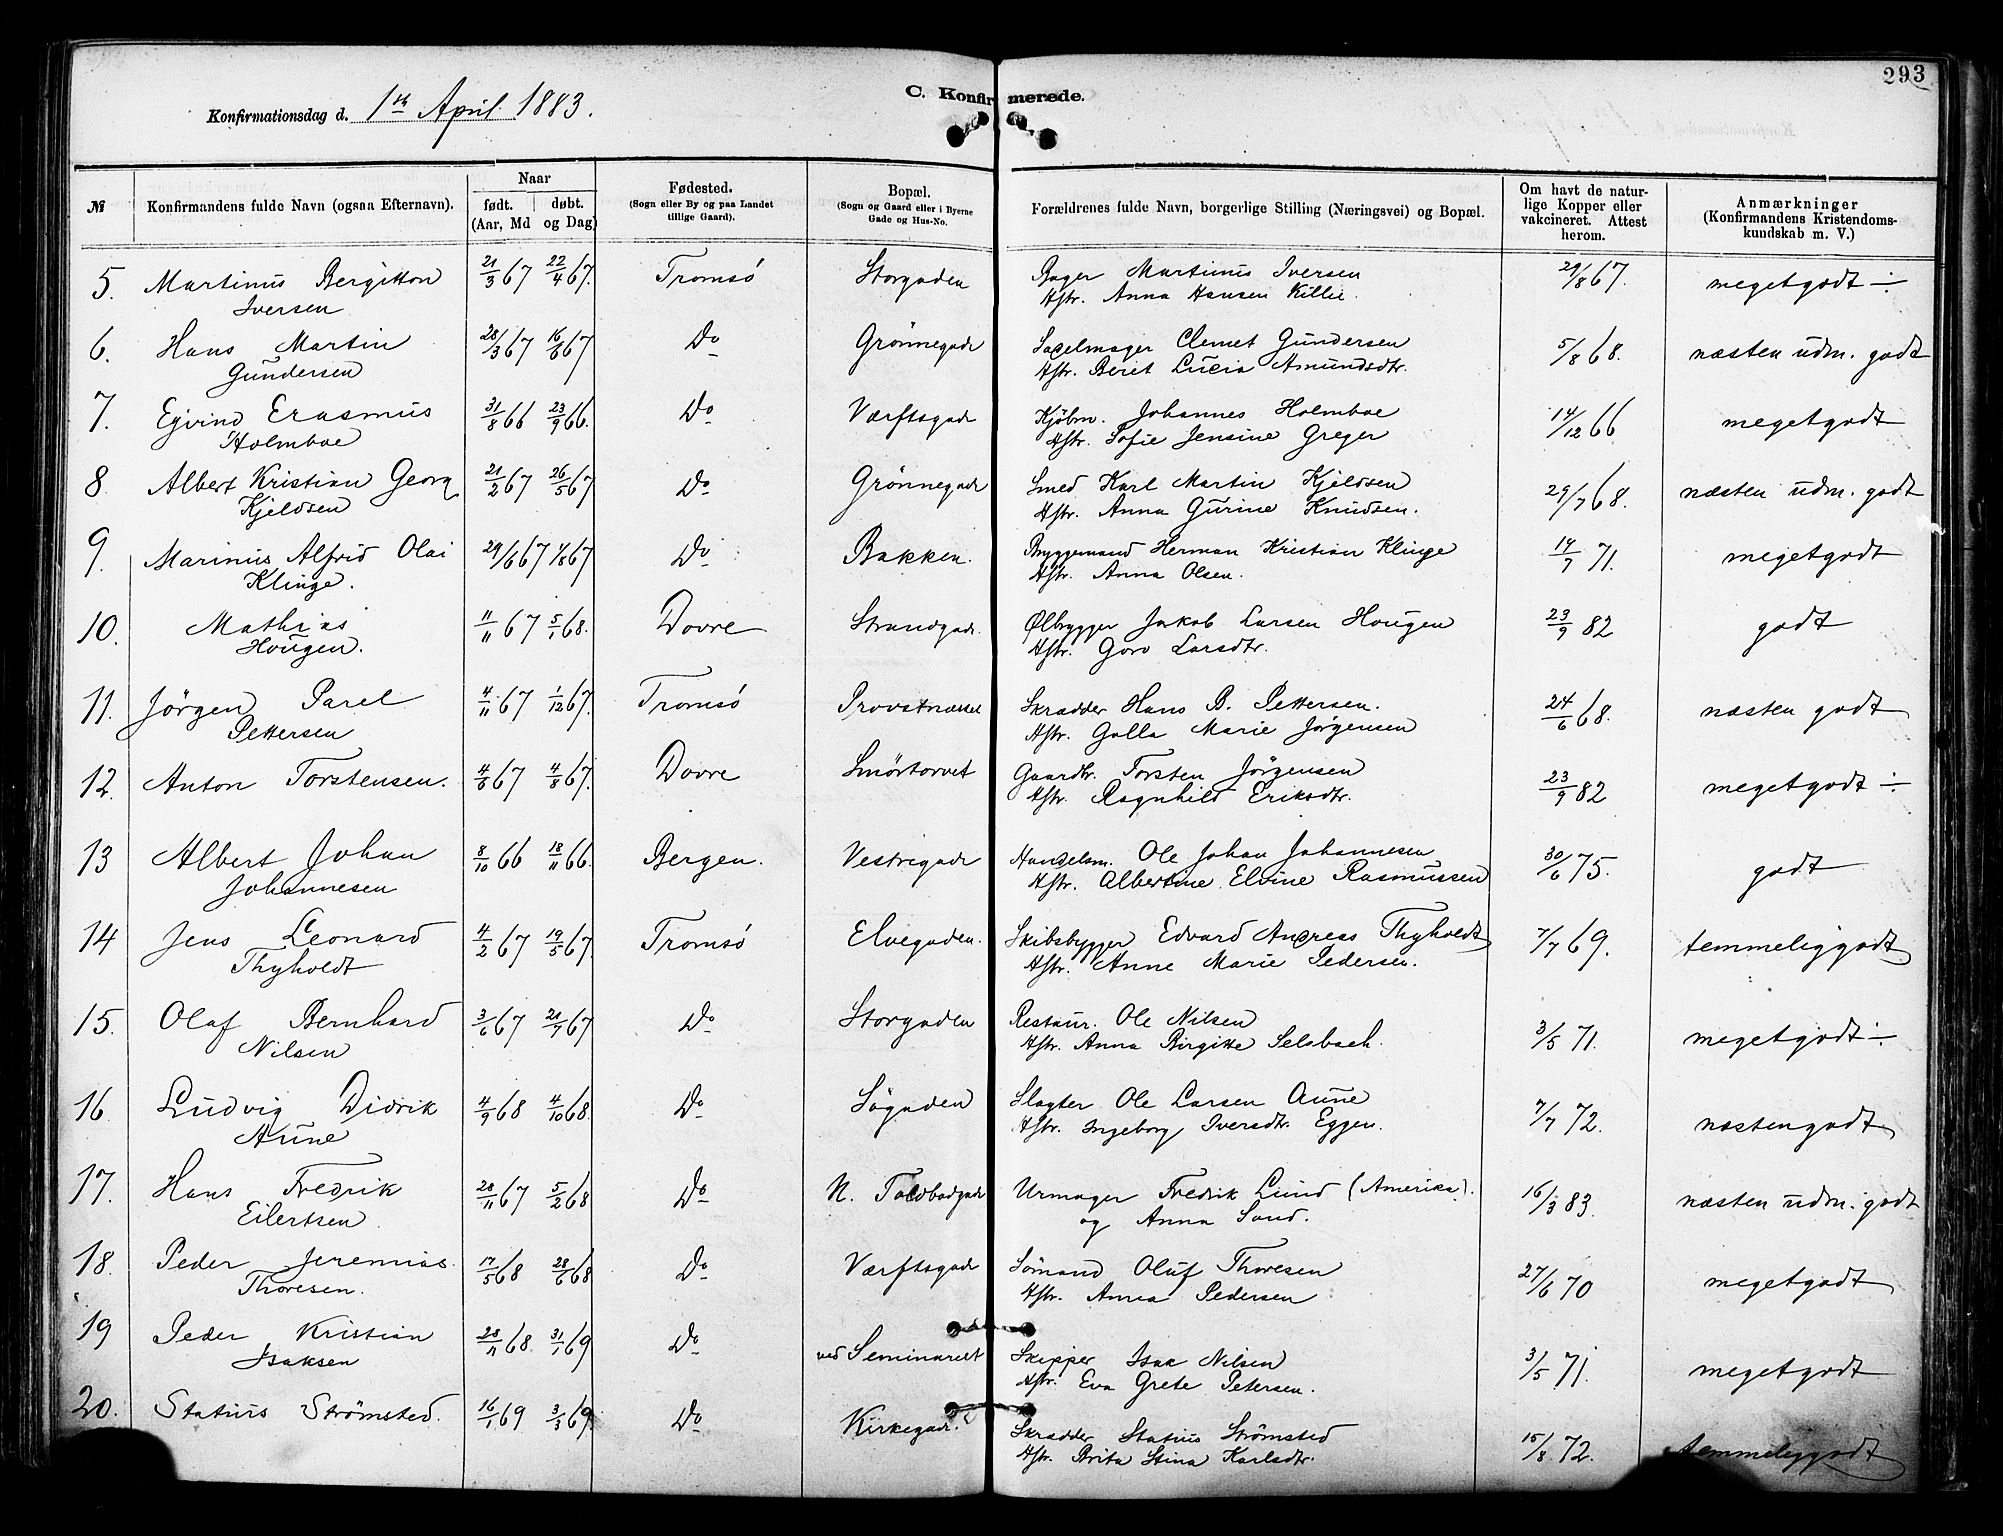 293
C. Konfirmerede.
Konfirmationsdag d. 1ste April 1883.
№ Konfirmandens fulde Navn (ogsaa Efternavn). Naar født. døbt. (Aar, Md og Dag) Fødested. (Sogn eller By og paa Landet tillige Gaard). Bopæl. (Sogn og Gaard eller i Byerne Gade og Hus-No. Forældrenes fulde Navn, borgerlige Stilling (Næringsvei) og Bopæl. Om havt de naturlige Kopper eller vakcineret. Attest herom. Anmærkninger (Konfirmandens Kristendomskundskab m. V.)
5. Martinus Bergitton 21/3 67 22/4 67. Tromsø Storgaden Bager Martinus Iversen 29/8 67. megetgodt ÷
Iversen Hstr. Anna Hansen Killie.
6. Hans Martin 28/3 67 16/6 67 Do Grønnegade Sadelmager Clemet Gundersen 5/8 68. næsten udm. godt
Gundersen Hstr. Berit Lucia Amundsdtr.
7. Ejvind Erasmus 31/8 66 23/9 66. Do Værftsgade Kjøbm. Johannes Holmboe 14/12 66 megetgodt
Holmboe Hstr. Sofie Jensine Greger
8. Albert Kristian Georg 21/2 67 26/5 67 Do Grønnegade Smed Karl Martin Kjeldsen 29/7 68. næsten udm. godt
Kjeldsen Hstr. Anna Gurine Knudsen.
9. Marinus Alfrid Olai 29/6 67 1/8 67 Do Bakken. Bryggemand Herman Kristian Klinge 14/7 71. megetgodt
Klinge. Hstr. Anna Olsen.
10. Mathias 11/11 67 5/1 68. Dovre Strandgade. Ølbrygger Jakob Larsen Hougen 23/9 82 godt
Hougen. Hstr. Goro Larsdtr.
11. Jørgen Parel 4/11 67 1/12 67. Tromsø Provstnæsset Skrædder Hans B. Pettersen. 24/6 68. næsten godt
Pettersen Hstr. Golla Marie Jørgensen
12. Anton Torstensen. 4/6 67 4/8 67. Dovre Smørtorvet Gaardbr. Torsten Jørgensen 23/9 82 megetgodt ÷
Hstr. Ragnhild Eriksdtr.
13 Albert Johan 8/10 66 18/11 66. Bergen. Vestregade Handelsm. Ole Johan Johannesen 30/6 75. godt
Johannesen Hstr. Albertine Elvine Rasmussen
14 Jens Leonard 4/2 67 19/5 67. Tromsø Elvegaden. Skibsbygger Edvard Andreas Thyholdt 7/7 69. temmeliggodt
Thyholdt Hstr. Anne Marie Pedersen.
15. Olaf Bernhard 3/6 67 21/7 67 Do Storgaden Restaur. Ole Nilsen 3/5 71. megetgodt ÷
Nilsen Hstr. Anna Birgitte Selsbach.
16. Ludvig Didrik 4/9 68 4/10 68. Do Søgaden Slagter Ole Larsen Aune 7/7 72. næstengodt
Aune Hstr. Ingeborg Iversdtr. Eggen.
17. Hans Fredrik 28/11 67 5/2 68 Do N. Toldbodgade Urmager Fredrik Lund (Amerika). 16/3 83. næsten udm. godt
Eilertsen og Anna Sand.
18. Peder Jeremias 17/5 68 28/6 68 Do Værftsgade Sømand Oluf Thoresen 27/6 70 megetgodt
Thoresen. Hstr. Anna Pedersen
19 Peder Kristian 28/11 68. 31/1 69 Do ved Seminariet Skipper Isak Nilsen 3/5 71. megetgodt
Isaksen Hstr. Eva Grete Petersen.
20. Statius Strømsted. 16/1 69 3/3 69. Do Kirkegade. Skrædder Statius Strømsted 15/8 72. temmeliggodt
Hstr. Brita Stina Karlsdtr.